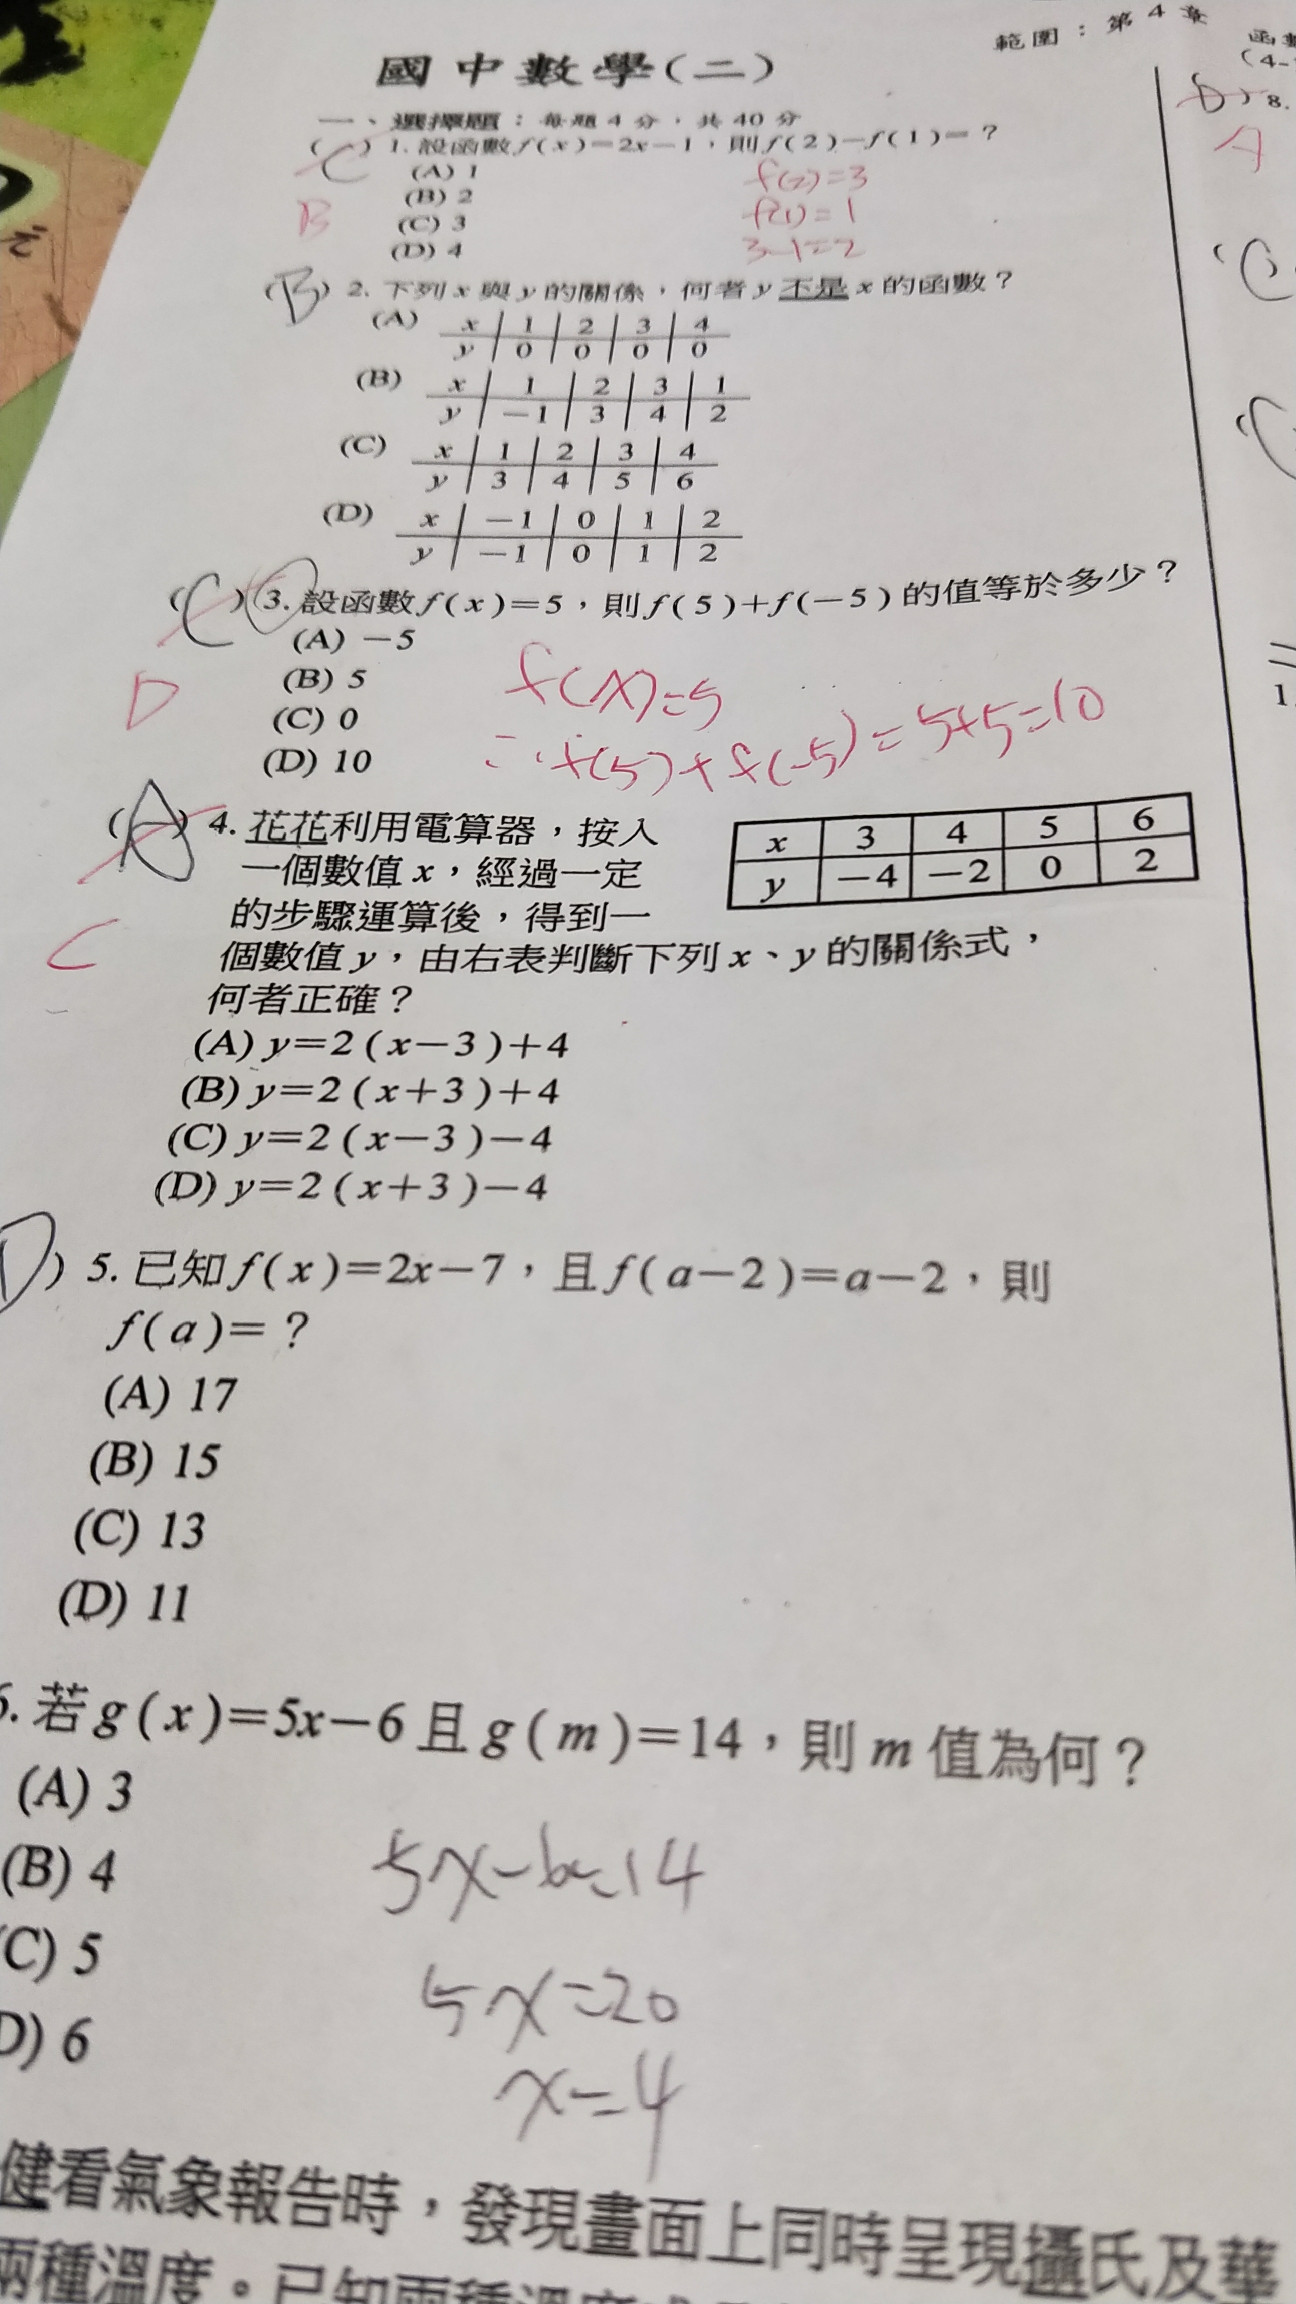 範圍：第4章
國中數學(二)
一、選擇題：每題4分，共40分
(C) 1. 設函數f(x)=2x−1，則f(2)−f(1)=？
(A) 1
(B) 2
(C) 3
(D) 4
B
f(2)=3
f(1)=1
3-1=2
(B) 2. 下列x與y的關係，何者y不是x的函數？
(A) x 1 2 3 4
y 0 0 0 0
(B) x 1 2 3 1
y −1 3 4 2
(C) x 1 2 3 4
y 3 4 5 6
(D) x −1 0 1 2
y −1 0 1 2
(C) 3. 設函數f(x)=5，則f(5)+f(−5)的值等於多少？
(A) −5
(B) 5
(C) 0
(D) 10
D
f(x)=5
∴f(5)+f(-5)=5+5=10
(A) 4. 花花利用電算器，按入
一個數值x，經過一定
的步驟運算後，得到一
個數值y，由右表判斷下列x、y的關係式，
何者正確？
x 3 4 5 6
y −4 −2 0 2
C
(A) y=2(x−3)+4
(B) y=2(x+3)+4
(C) y=2(x−3)−4
(D) y=2(x+3)−4
D) 5. 已知f(x)=2x−7，且f(a−2)=a−2，則
f(a)=？
(A) 17
(B) 15
(C) 13
(D) 11
6. 若g(x)=5x−6且g(m)=14，則m值為何？
(A) 3
(B) 4
(C) 5
D) 6
5x-6=14
5x=20
x=4
健看氣象報告時，發現畫面上同時呈現攝氏及華
兩種溫度。已知兩種溫度
函
(4-
D) 8.
A
(C)
1.